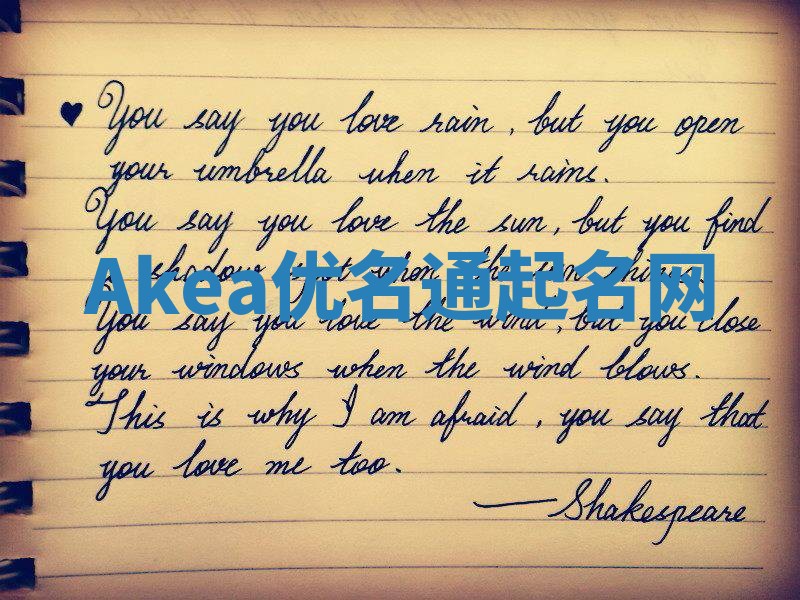 ♥ You say you love rain, but you open
your umbrella when it rains.
You say you love the sun, but you find
a shadow spot when the sun shines.
Akea优名通起名网
You say you love the wind, but you close
your windows when the wind blows.
This is why I am afraid, you say that
you love me too.
— Shakespeare